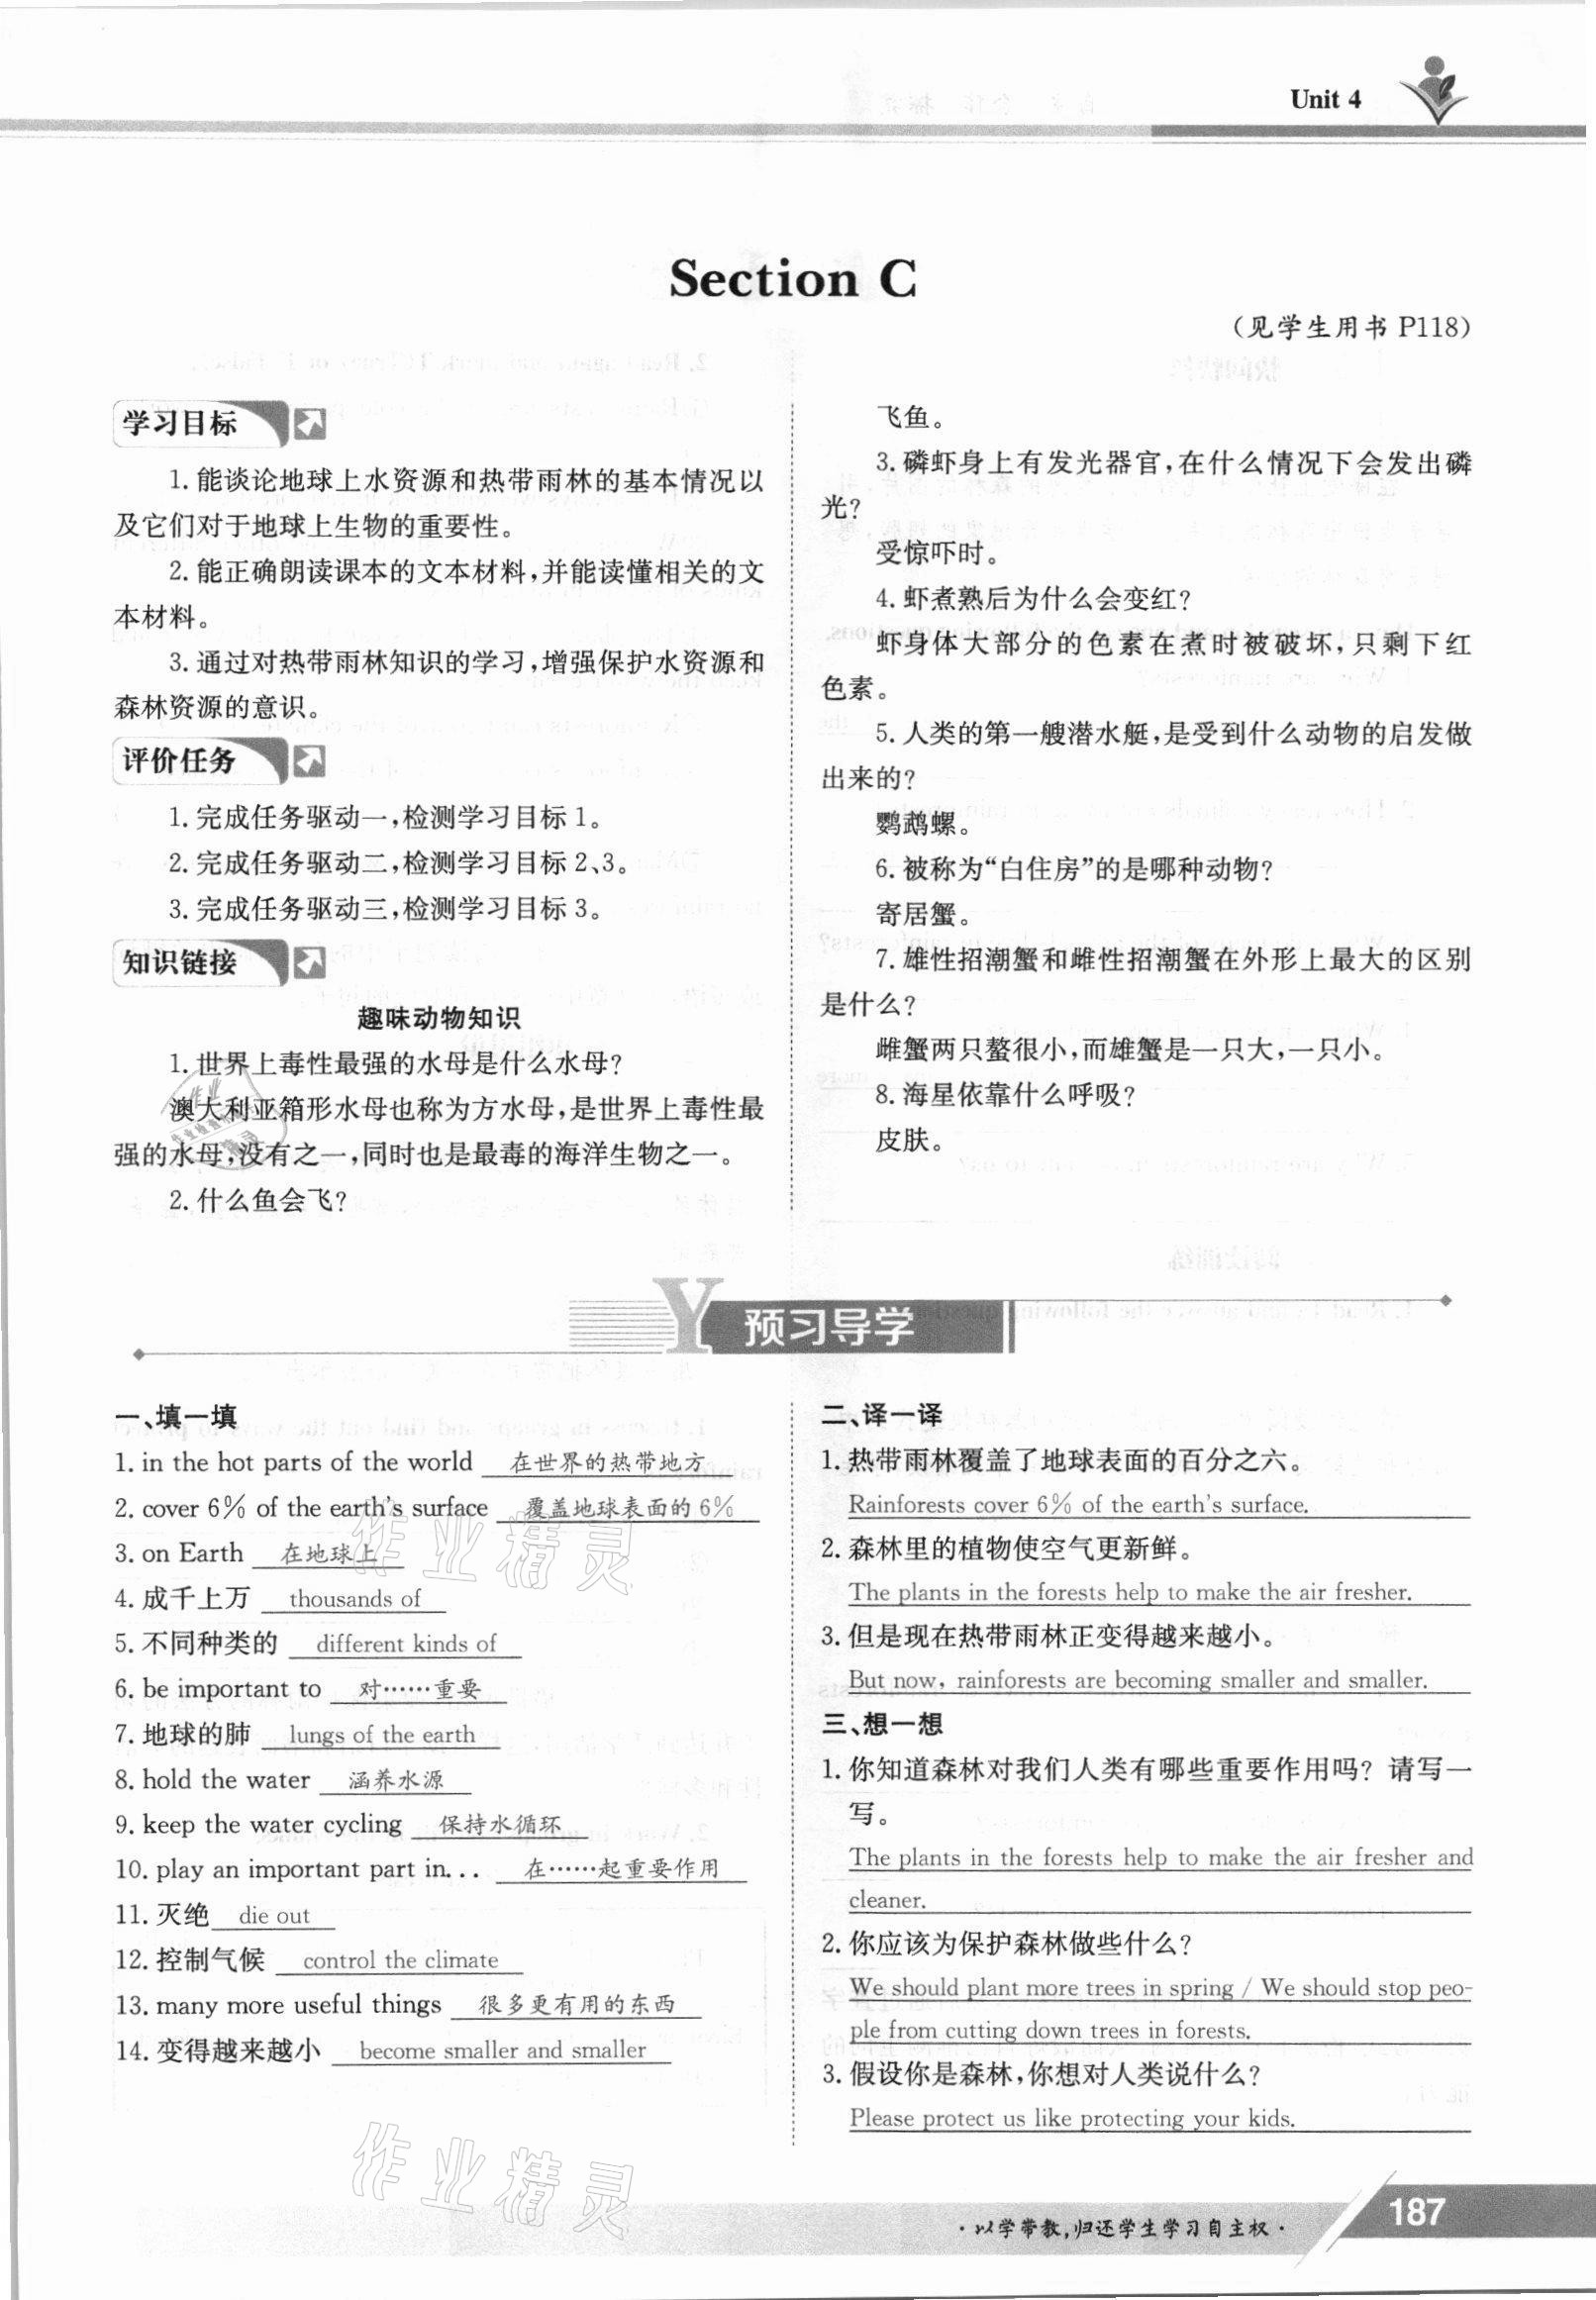 Unit 4
Section C
(见学生用书 P118)
学习目标
1. 能谈论地球上水资源和热带雨林的基本情况以
及它们对于地球上生物的重要性。
2. 能正确朗读课本的文本材料,并能读懂相关的文
本材料。
3. 通过对热带雨林知识的学习,增强保护水资源和
森林资源的意识。
评价任务
1. 完成任务驱动一,检测学习目标1。
2. 完成任务驱动二,检测学习目标2、3。
3. 完成任务驱动三,检测学习目标3。
知识链接
趣味动物知识
1. 世界上毒性最强的水母是什么水母?
澳大利亚箱形水母也称为方水母,是世界上毒性最
强的水母,没有之一,同时也是最毒的海洋生物之一。
2. 什么鱼会飞?
飞鱼。
3. 磷虾身上有发光器官,在什么情况下会发出磷
光?
受惊吓时。
4. 虾煮熟后为什么会变红?
虾身体大部分的色素在煮时被破坏,只剩下红
色素。
5. 人类的第一艘潜水艇,是受到什么动物的启发做
出来的?
鹦鹉螺。
6. 被称为“白住房”的是哪种动物?
寄居蟹。
7. 雄性招潮蟹和雌性招潮蟹在外形上最大的区别
是什么?
雌蟹两只螯很小,而雄蟹是一只大,一只小。
8. 海星依靠什么呼吸?
皮肤。
Y 预习导学
一、填一填
1. in the hot parts of the world 在世界的热带地方
2. cover 6% of the earth's surface 覆盖地球表面的6%
3. on Earth 在地球上
4. 成千上万 thousands of
5. 不同种类的 different kinds of
6. be important to 对……重要
7. 地球的肺 lungs of the earth
8. hold the water 涵养水源
9. keep the water cycling 保持水循环
10. play an important part in... 在……起重要作用
11. 灭绝 die out
12. 控制气候 control the climate
13. many more useful things 很多更有用的东西
14. 变得越来越小 become smaller and smaller
二、译一译
1. 热带雨林覆盖了地球表面的百分之六。
Rainforests cover 6% of the earth's surface.
2. 森林里的植物使空气更新鲜。
The plants in the forests help to make the air fresher.
3. 但是现在热带雨林正变得越来越小。
But now, rainforests are becoming smaller and smaller.
三、想一想
1. 你知道森林对我们人类有哪些重要作用吗? 请写一
写。
The plants in the forests help to make the air fresher and
cleaner.
2. 你应该为保护森林做些什么?
We should plant more trees in spring / We should stop peo-
ple from cutting down trees in forests.
3. 假设你是森林,你想对人类说什么?
Please protect us like protecting your kids.
作业精灵
作业精灵
·以学带教,归还学生学习自主权·
187